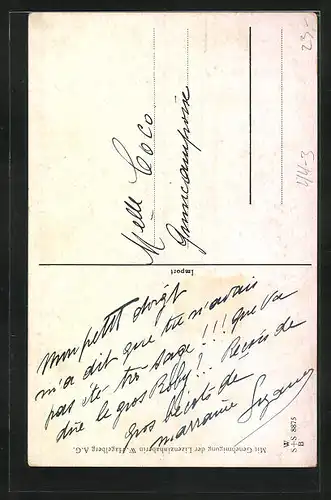 Mon petit doigt
m'a dit que tu n'avais
pas été très sage !!! que va
dire le gros Roby ?. Reçois de
gros bécots de
marraine Suzanne
Melle Coco
Import
Mit Genehmigung der Lizenzinhaberin W. Hagelberg A.G.
W
S+S 8875
B
23.-